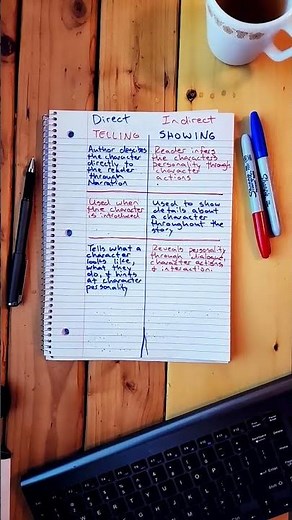 Direct
Indirect
TELLING
SHOWING
Author describes
the character
directly to
the reader
through
Narration
Reader infers
the characters
personality through
character
actions
Used when
the character
is introduced
Used to show
details about
a character
throughout the
story
Tells what a
character
looks like,
what they
do, & hints
at character
personality
Reveals personality
through dialogue,
character actions
& interaction.
Sharpie